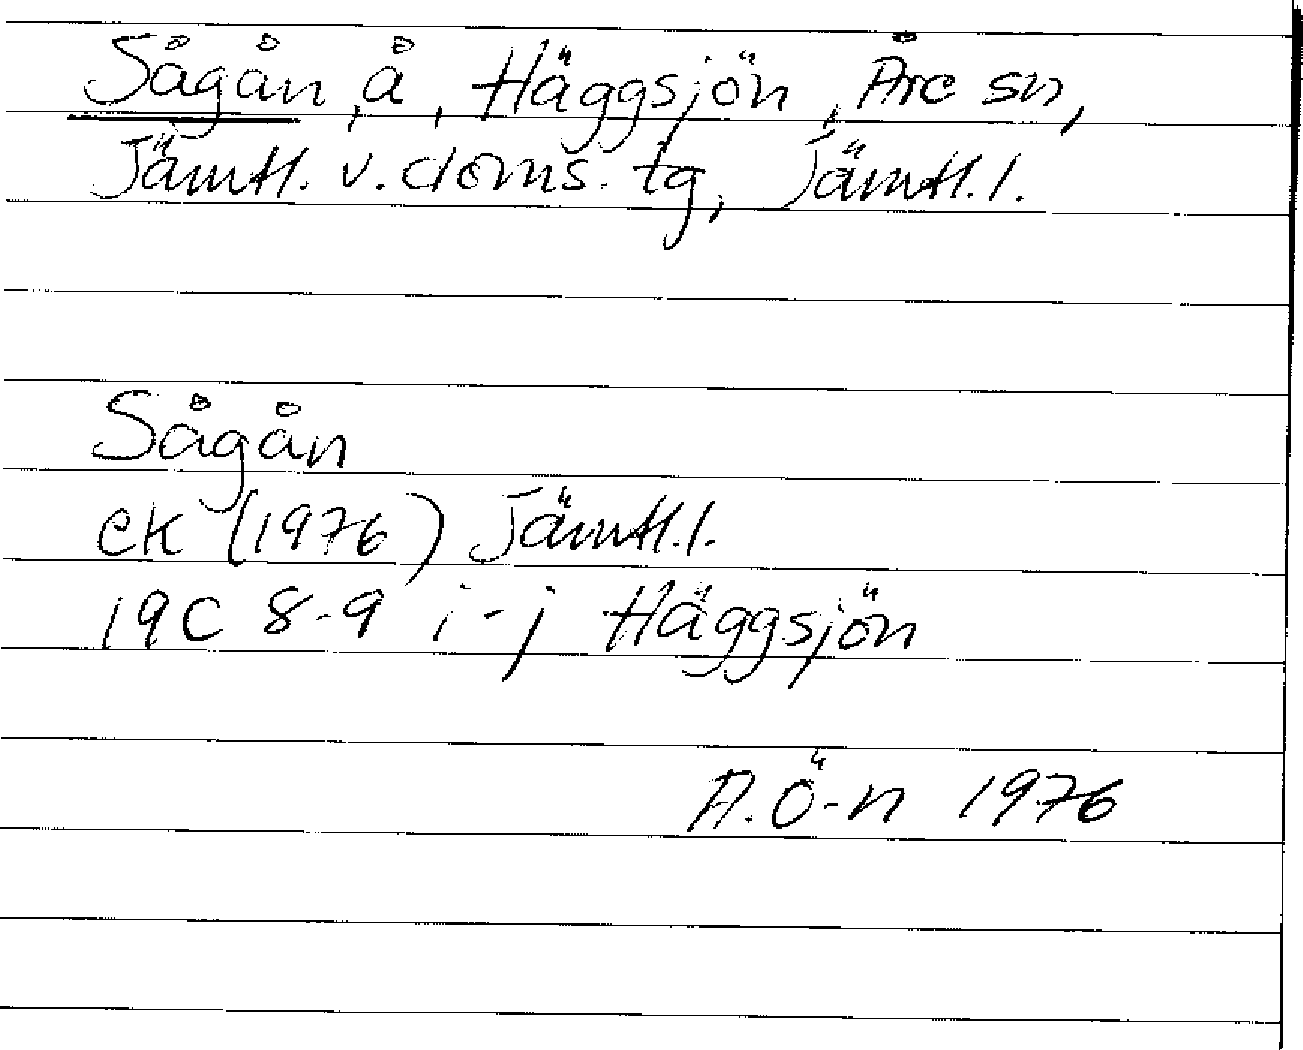 Sågån, å, Häggsjön, Åre sn,
Jämtl. v. doms. tg, Jämtl. l.
Sågån
ek (1976) Jämtl. l.
19C 8-9 i-j Häggsjön
A. Ö-n 1976